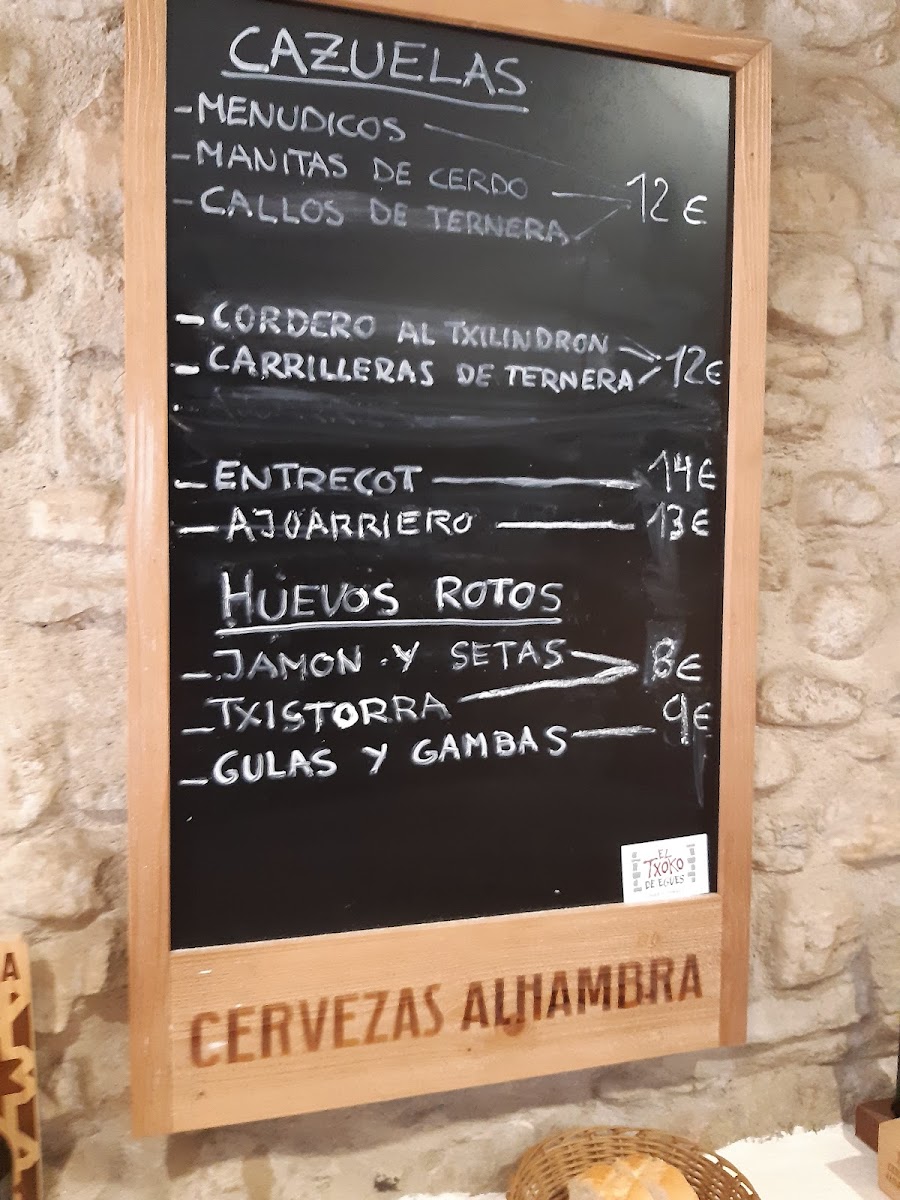 CAZUELAS
- MENUDICOS
- MANITAS DE CERDO
- CALLOS DE TERNERA 12 €
- CORDERO AL TXILINDRON
- CARRILLERAS DE TERNERA 12€
- ENTRECOT 14€
- AJOARRIERO 13€
HUEVOS ROTOS
- JAMON Y SETAS 8€
- TXISTORRA
- GULAS Y GAMBAS 9€
EL
TXOKO
DE EGUES
CERVEZAS ALHAMBRA
A